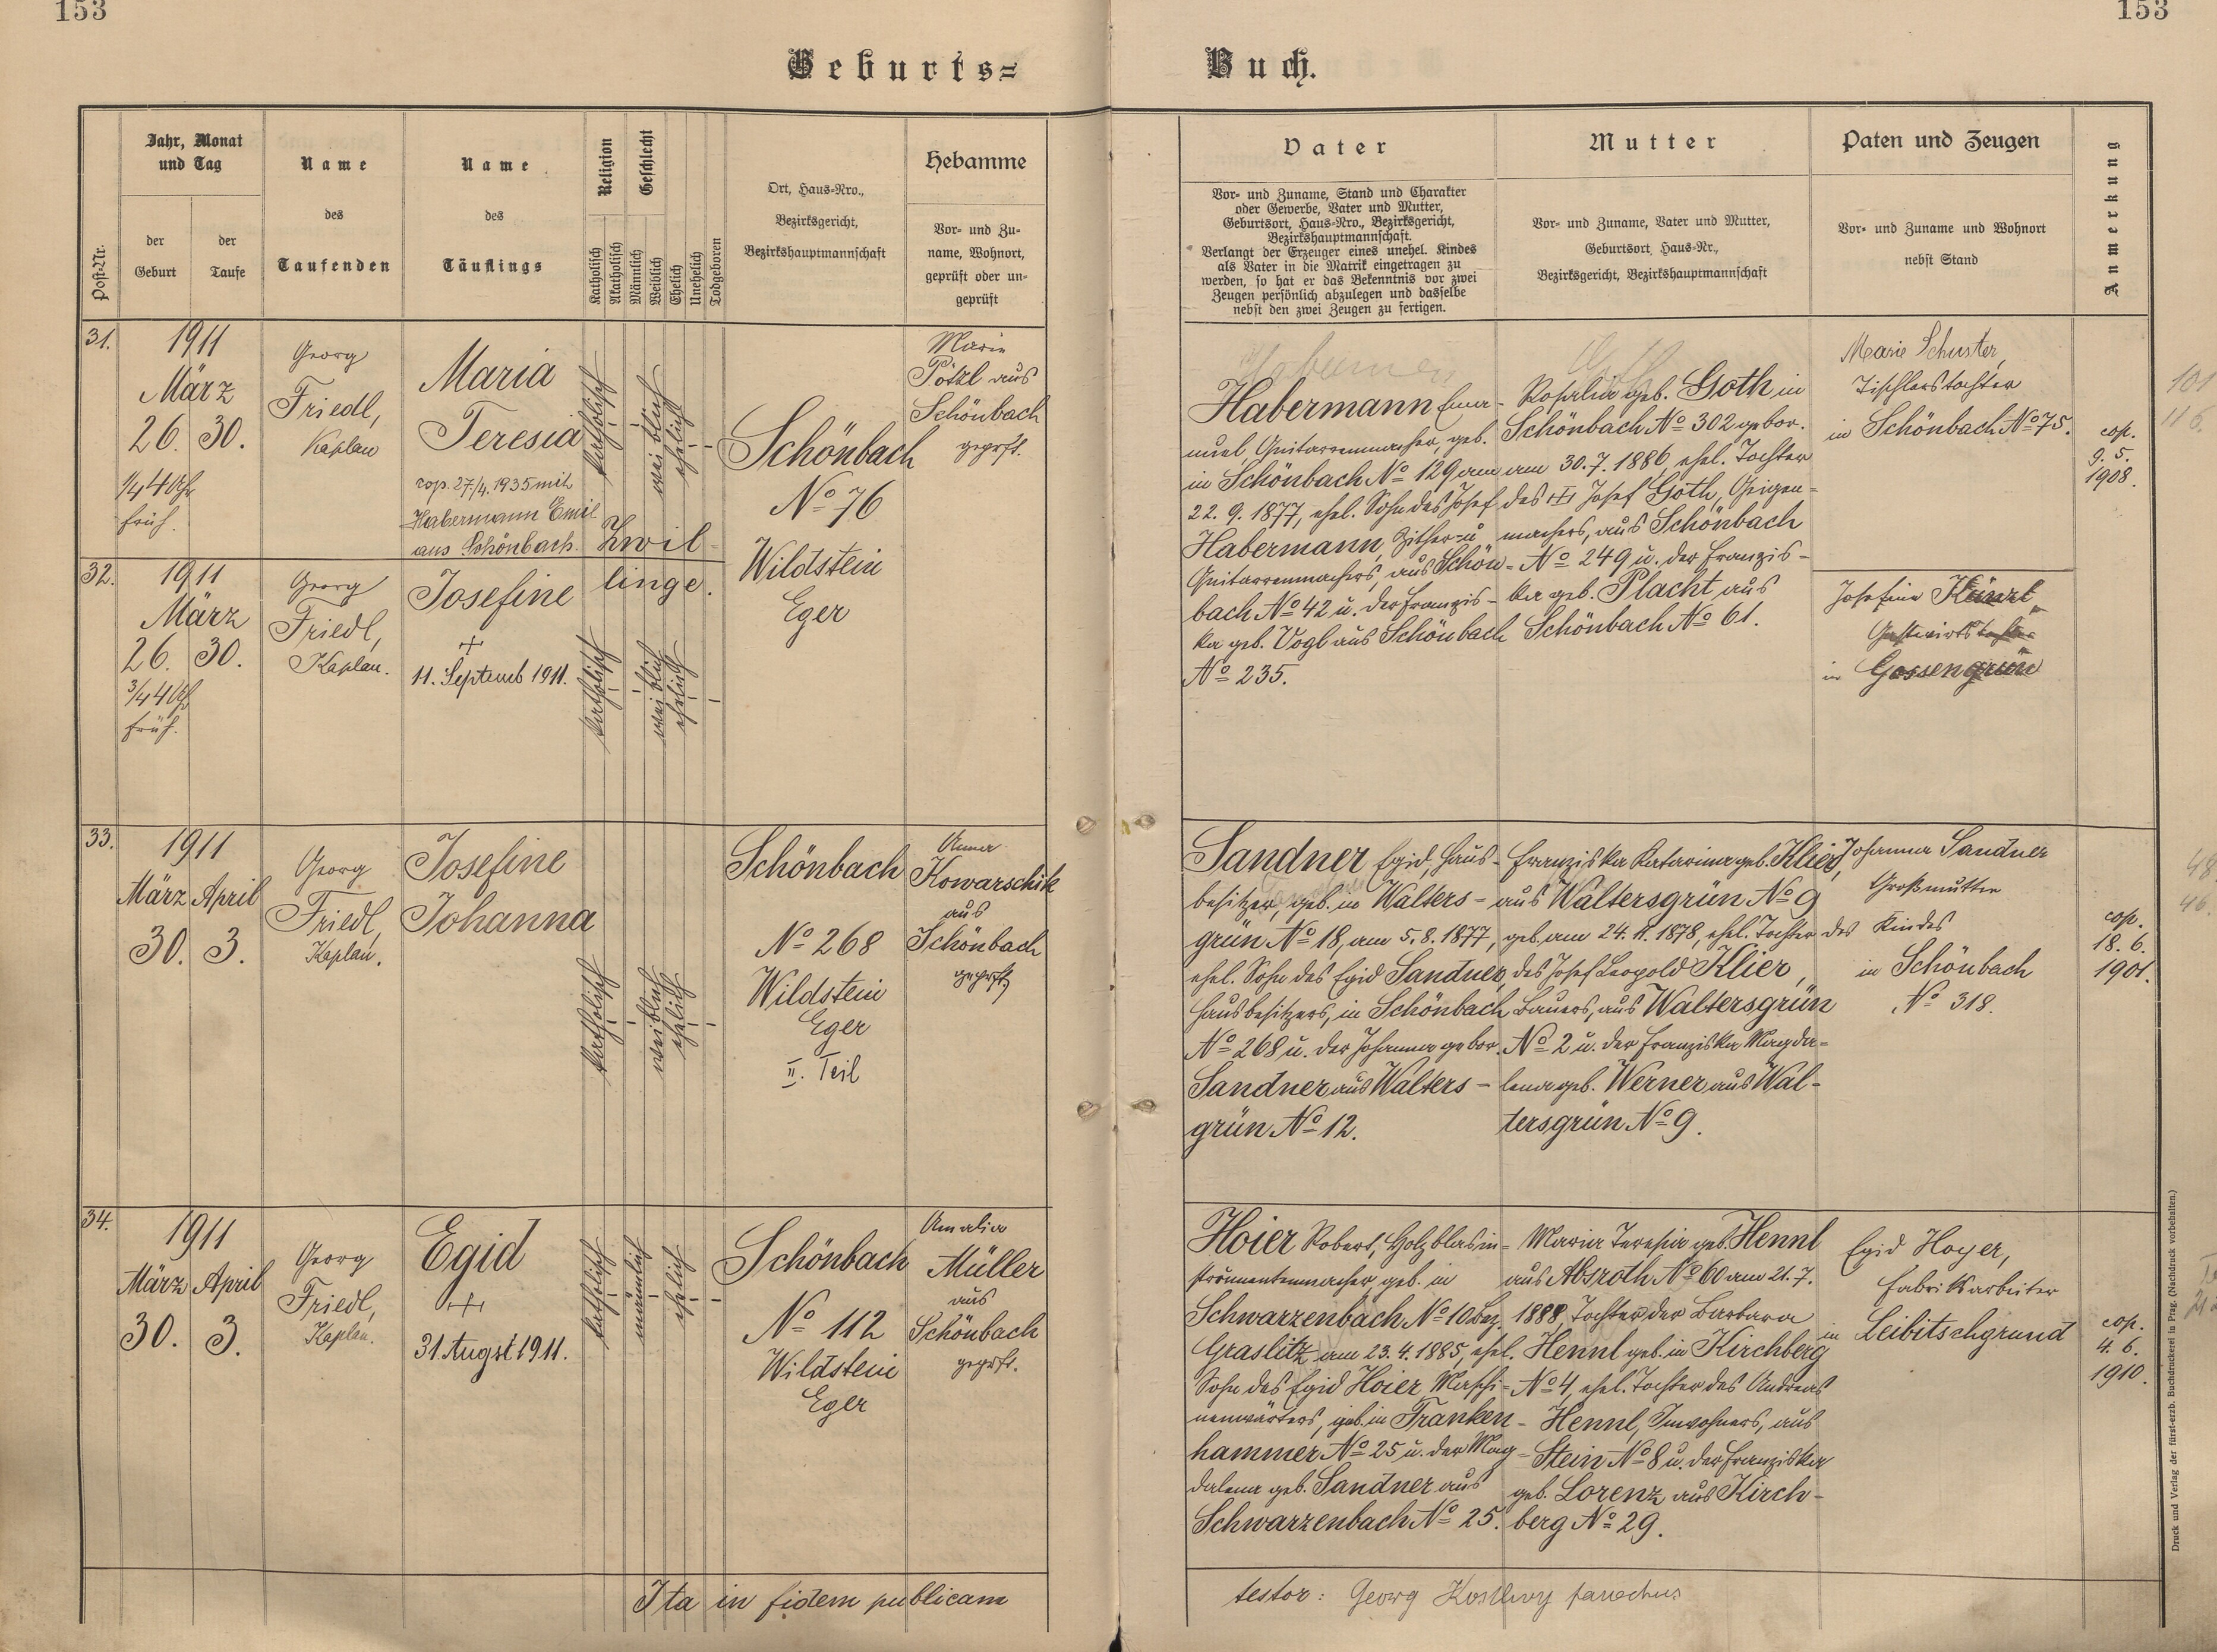 153
153
Geburts=
Buch.
Post-Nr.
Jahr, Monat
und Tag
der
Geburt
der
Taufe
Name
des
Taufenden
Name
des
Täuflings
Religion
Katholisch
Akatholisch
Geschlecht
Männlich
Weiblich
Ehelich
Unehelich
Todgeboren
Ort, Haus-Nro.,
Bezirksgericht,
Bezirkshauptmannschaft
Hebamme
Vor- und Zu-
name, Wohnort,
geprüft oder un-
geprüft
Vater
Vor- und Zuname, Stand und Charakter
oder Gewerbe, Vater und Mutter,
Geburtsort, Haus-Nro., Bezirksgericht,
Bezirkshauptmannschaft.
Verlangt der Erzeuger eines unehel. Kindes
als Vater in die Matrik eingetragen zu
werden, so hat er das Bekenntnis vor zwei
Zeugen persönlich abzulegen und dasselbe
nebst den zwei Zeugen zu fertigen.
Mutter
Vor- und Zuname, Vater und Mutter,
Geburtsort, Haus-Nr.,
Bezirksgericht, Bezirkshauptmannschaft
Paten und Zeugen
Vor- und Zuname und Wohnort
nebst Stand
Anmerkung
31.
1911
März
26. 30.
1/4 4 Uhr
früh.
Georg
Friedl,
Kaplan
Maria
Teresia
cop. 27./4. 1935 mit
Habermann Emil
aus Schönbach.
katholisch
weiblich
ehelich
Zwil-
linge.
Schönbach
No 76
Wildstein
Eger
Marie
Pötzl aus
Schönbach
geprft.
Habermann Ema-
nuel Guitarrenmacher, geb.
in Schönbach No 129 am
22. 9. 1877, ehel. Sohn des Josef
Habermann, Zither- u
Guitarrenmachers, aus Schön-
bach No 42 u. der Franzis-
ka geb. Vogl aus Schönbach
No 235.
Rosalia geb. Goth in
Schönbach No 302 gebor.
am 30. 7. 1886, ehel. Tochter
des Josef Goth, Geigen-
machers, aus Schönbach
No 249 u. der Franzis-
ka geb. Placht aus
Schönbach No 61.
Marie Schuster,
Tischlerstochter
in Schönbach No 75.
cop.
9. 5.
1908.
101
116.
32.
1911
März
26. 30.
3/4 4 Uhr
früh.
Georg
Friedl,
Kaplan.
Josefine
+
11. Septemb 1911.
katholisch
weiblich
ehelich
Josefine Künzl
Gastwirtstochter
in Gossengrün
33.
1911
März April
30. 3.
Georg
Friedl,
Kaplan.
Josefine
Johanna
katholisch
weiblich
ehelich
Schönbach
No 268
Wildstein
Eger
II. Teil
Anna
Kowarschik
aus
Schönbach
geprft.
Sandner Egid, Haus-
besitzer, geb. in Walters-
grün No 18, am 5. 8. 1877,
ehel. Sohn des Egid Sandner,
Hausbesitzers, in Schönbach
No 268 u. der Johanna gebor.
Sandner aus Walters-
grün No 12.
Franziska Katarina geb. Klier,
aus Waltersgrün No 9
geb. am 24. 11. 1878, ehel. Tochter
des Josef Leopold Klier,
Bauers, aus Waltersgrün
No 2 u. der Franziska Magda-
lena geb. Werner aus Wal-
tersgrün No 9.
Johanna Sandner
Großmutter
des Kindes
in Schönbach
No 318.
cop.
18. 6.
1901.
48.
46.
34.
1911
März April
30. 3.
Georg
Friedl,
Kaplan.
Egid
+
31. Augst 1911.
katholisch
männlich
ehelich
Schönbach
No 112
Wildstein
Eger
Amalia
Müller
aus
Schönbach
geprft.
Hoier Robert, Holzblasin-
strumentenmacher, geb. in
Schwarzenbach No 10 Bez.
Graslitz am 23. 4. 1885, ehel.
Sohn des Egid Hoier Maschi-
nenwärters, geb. in Franken-
hammer No 25 u. der Mag-
dalena geb. Sandner aus
Schwarzenbach No 25.
Maria Teresia geb. Hennl
aus Absroth No 60 am 21. 7.
1888, Tochter der Barbara
Hennl geb. in Kirchberg
No 4, ehel. Tochter des Andreas
Hennl, Inwohners, aus
Stein No 8 u. der Franziska
geb. Lorenz aus Kirch-
berg No 29.
Egid Hoyer,
Fabriksarbeiter
in Leibitschgrund
cop.
4. 6.
1910.
Ita in fidem publicam
testor: Georg Kosthvy parochus
Druck und Verlag der fürst-erzb. Buchdruckerei in Prag. (Nachdruck vorbehalten.)